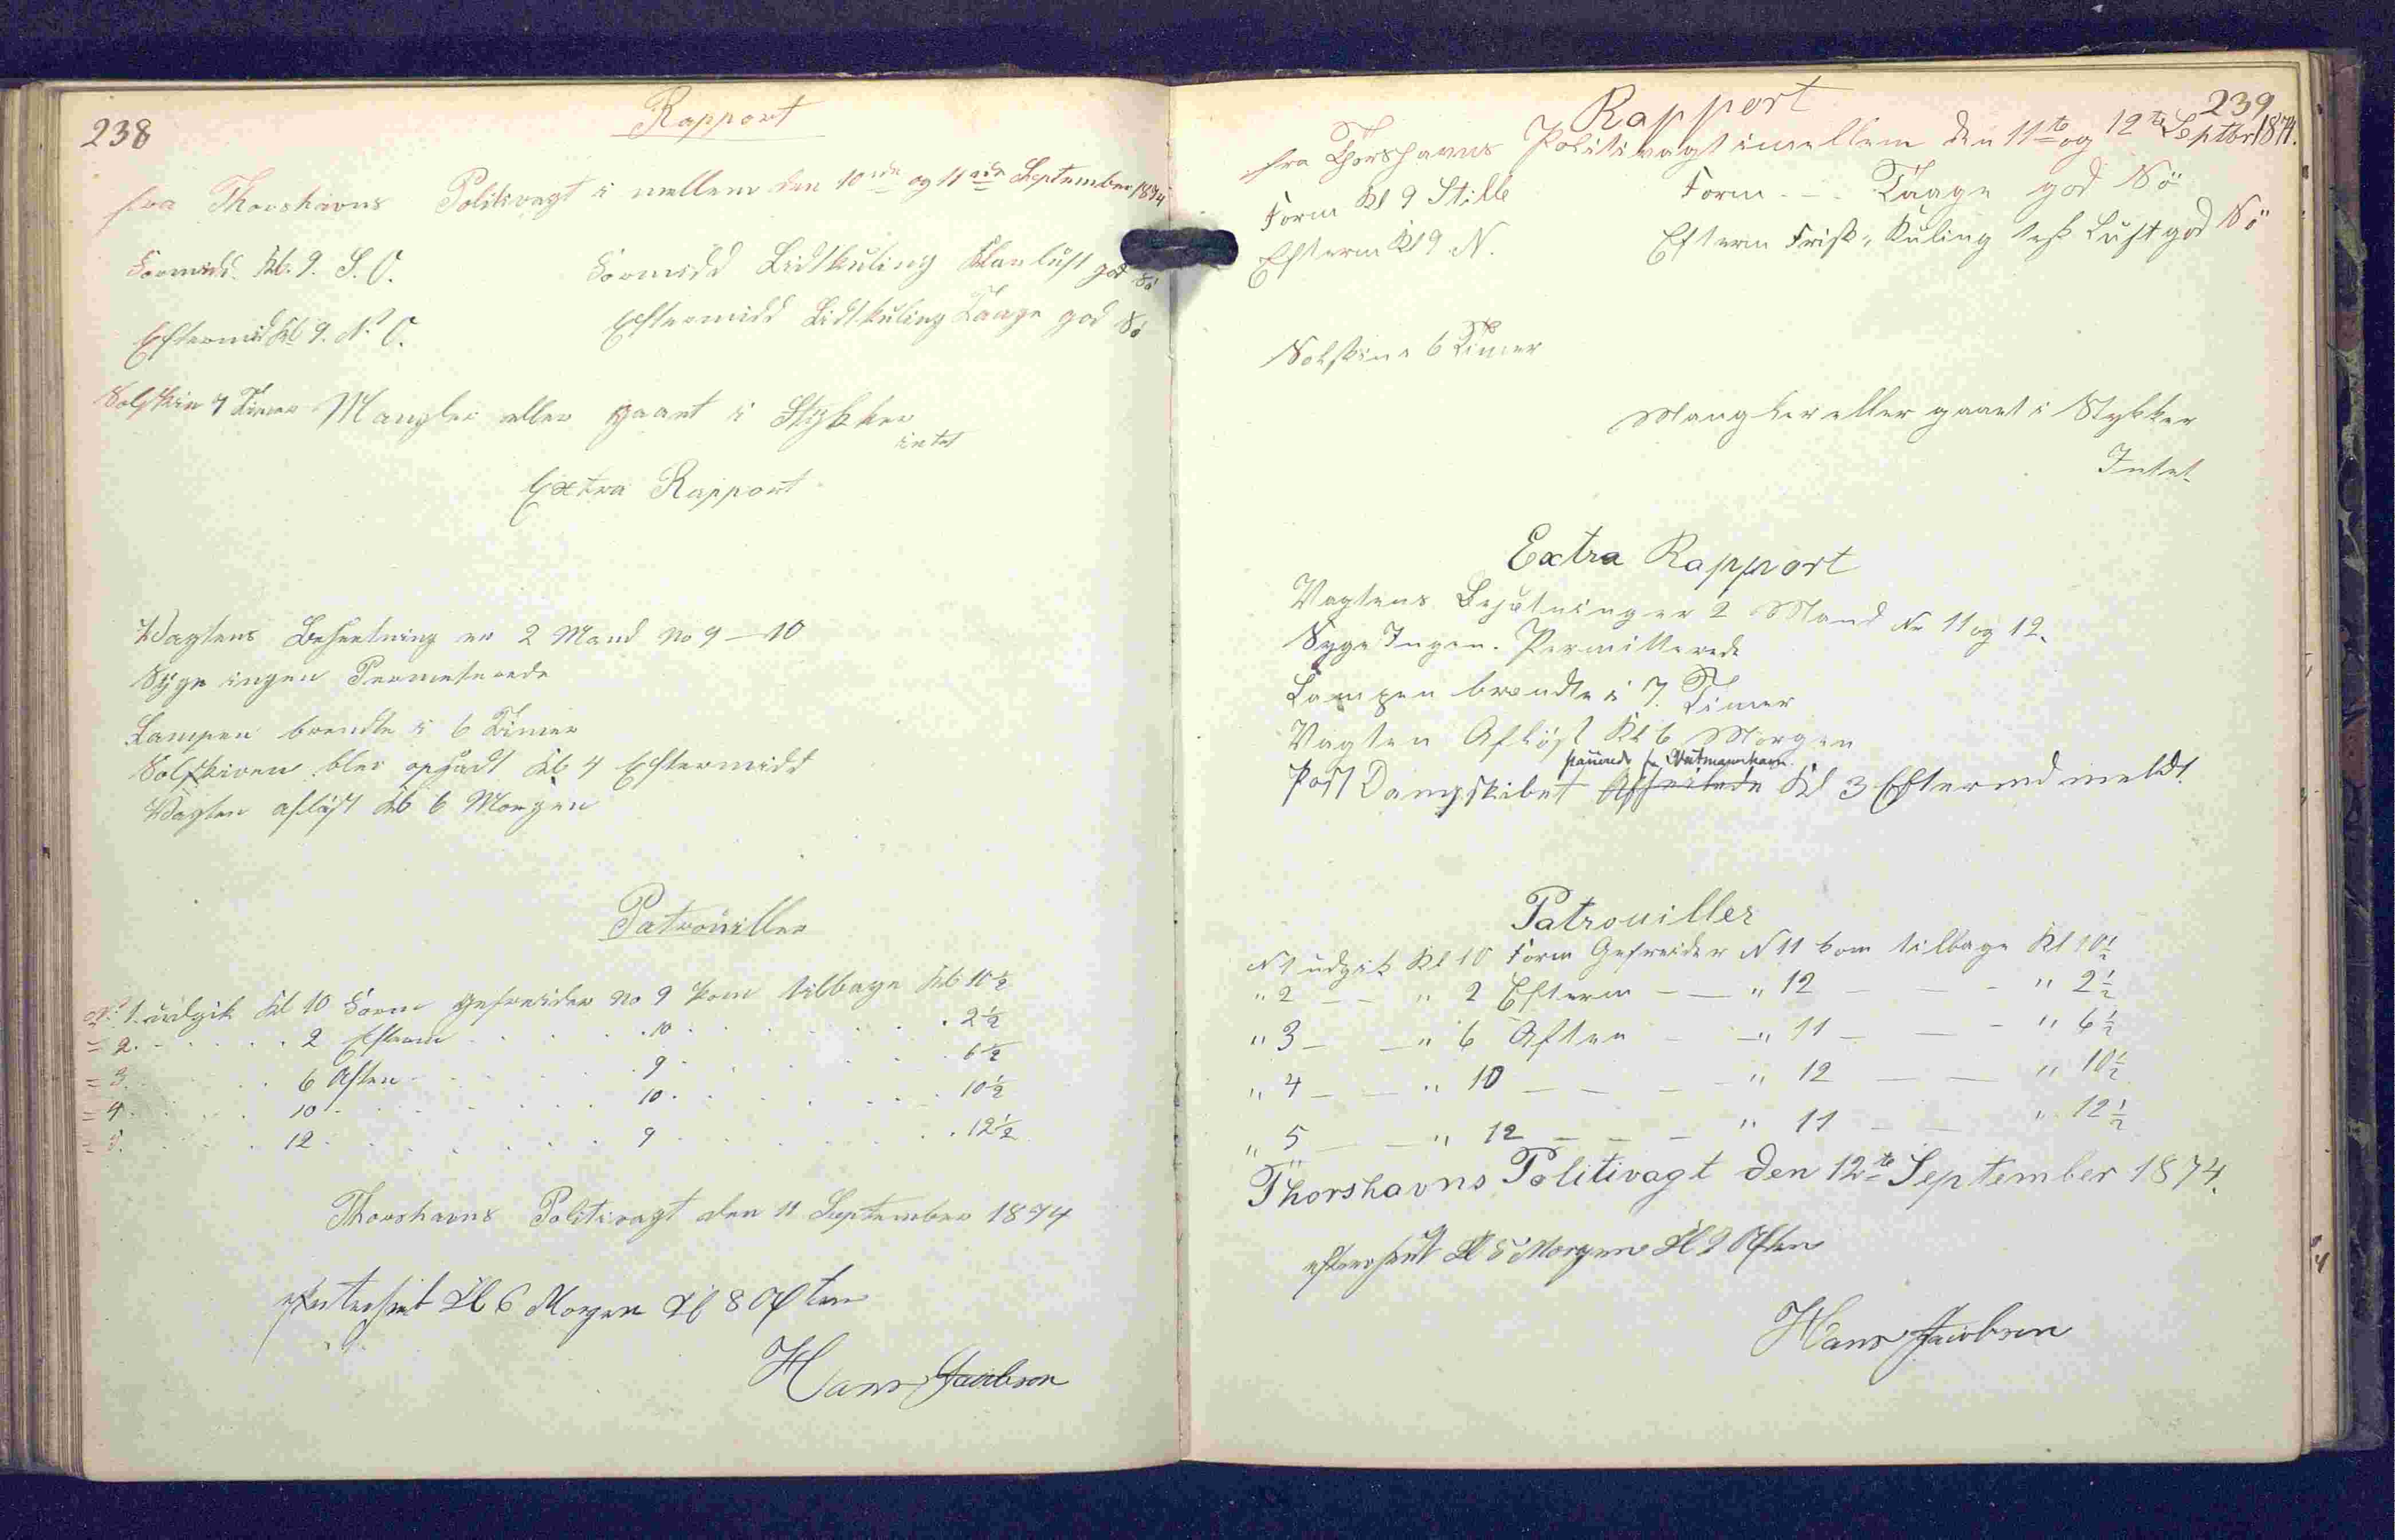 238
Rapport
fra Thorshavns Politivagt i mellem den 10de og 11te September 1874
Formidd. Kl. 9. S. O. Formidd Lidtkuling Klarluft god Sö
Eftermid Kl 9. N. O. Eftermidd Lidtkuling Taage god Sö
Solskin 7 Timer Mangler eller gaaet i Stykker
intet
Extra Rapport
Vagtens Besætning er 2 Mand No 9 – 10
Syge ingen Permeterede
Lampen brendte i 6 Timer
Solskiven blev opsadt Kl 4 Eftermidd
Vagten aflöst Kl 6 Morgen
Patrouiller
No 1. udgik Kl 10 Form gefreider No 9 kom tilbage Kl 10½
= 2. 2 Efterm 10 2½
= 3. 6 Aften 9 6½
= 4. 10 10 10½
= 5. 12 9 12½
Thorshavns Politivagt den 11 September 1874
efterseet Kl 6 Morgen Kl 8 Aften
Hans Jacobsen
239
Rapport
fra Thorshavns Politivagt imellem den 11te og 12te Septbr 1874.
Form Kl 9 Stille Form - - Taage god Sö
Efterm Kl 9 N. Efterm Frisk, Kuling tyk Luft god Sö
Solskin 6 Timer
Mangler eller gaaet i Stykker
Intet
Extra Rapport
Vagtens Besætning er 2 Mand No 11 og 12.
Syge Ingen. Permitterede
Lampen brendte i 7 Timer
Vagten Aflöst Kl 6 Morgen
Post Dampskibet Afseilede Kl 3 Eftermd meldt
Patrouiller
N 1 udgik Kl 10 Form Gefreider N 11 kom tilbage Kl 10½
" 2 – – " 2 Efterm – – " 12 – – " 2½
" 3 – – " 6 Aften – – " 11 – – " 6½
" 4 – – " 10 – – – " 12 – – " 10½
" 5 – – " 12 – – – " 11 – – " 12½
Thorshavns Politivagt den 12te September 1874.
efterseet Kl 5 Morgen Kl 9 Aften
Hans Jacobsen